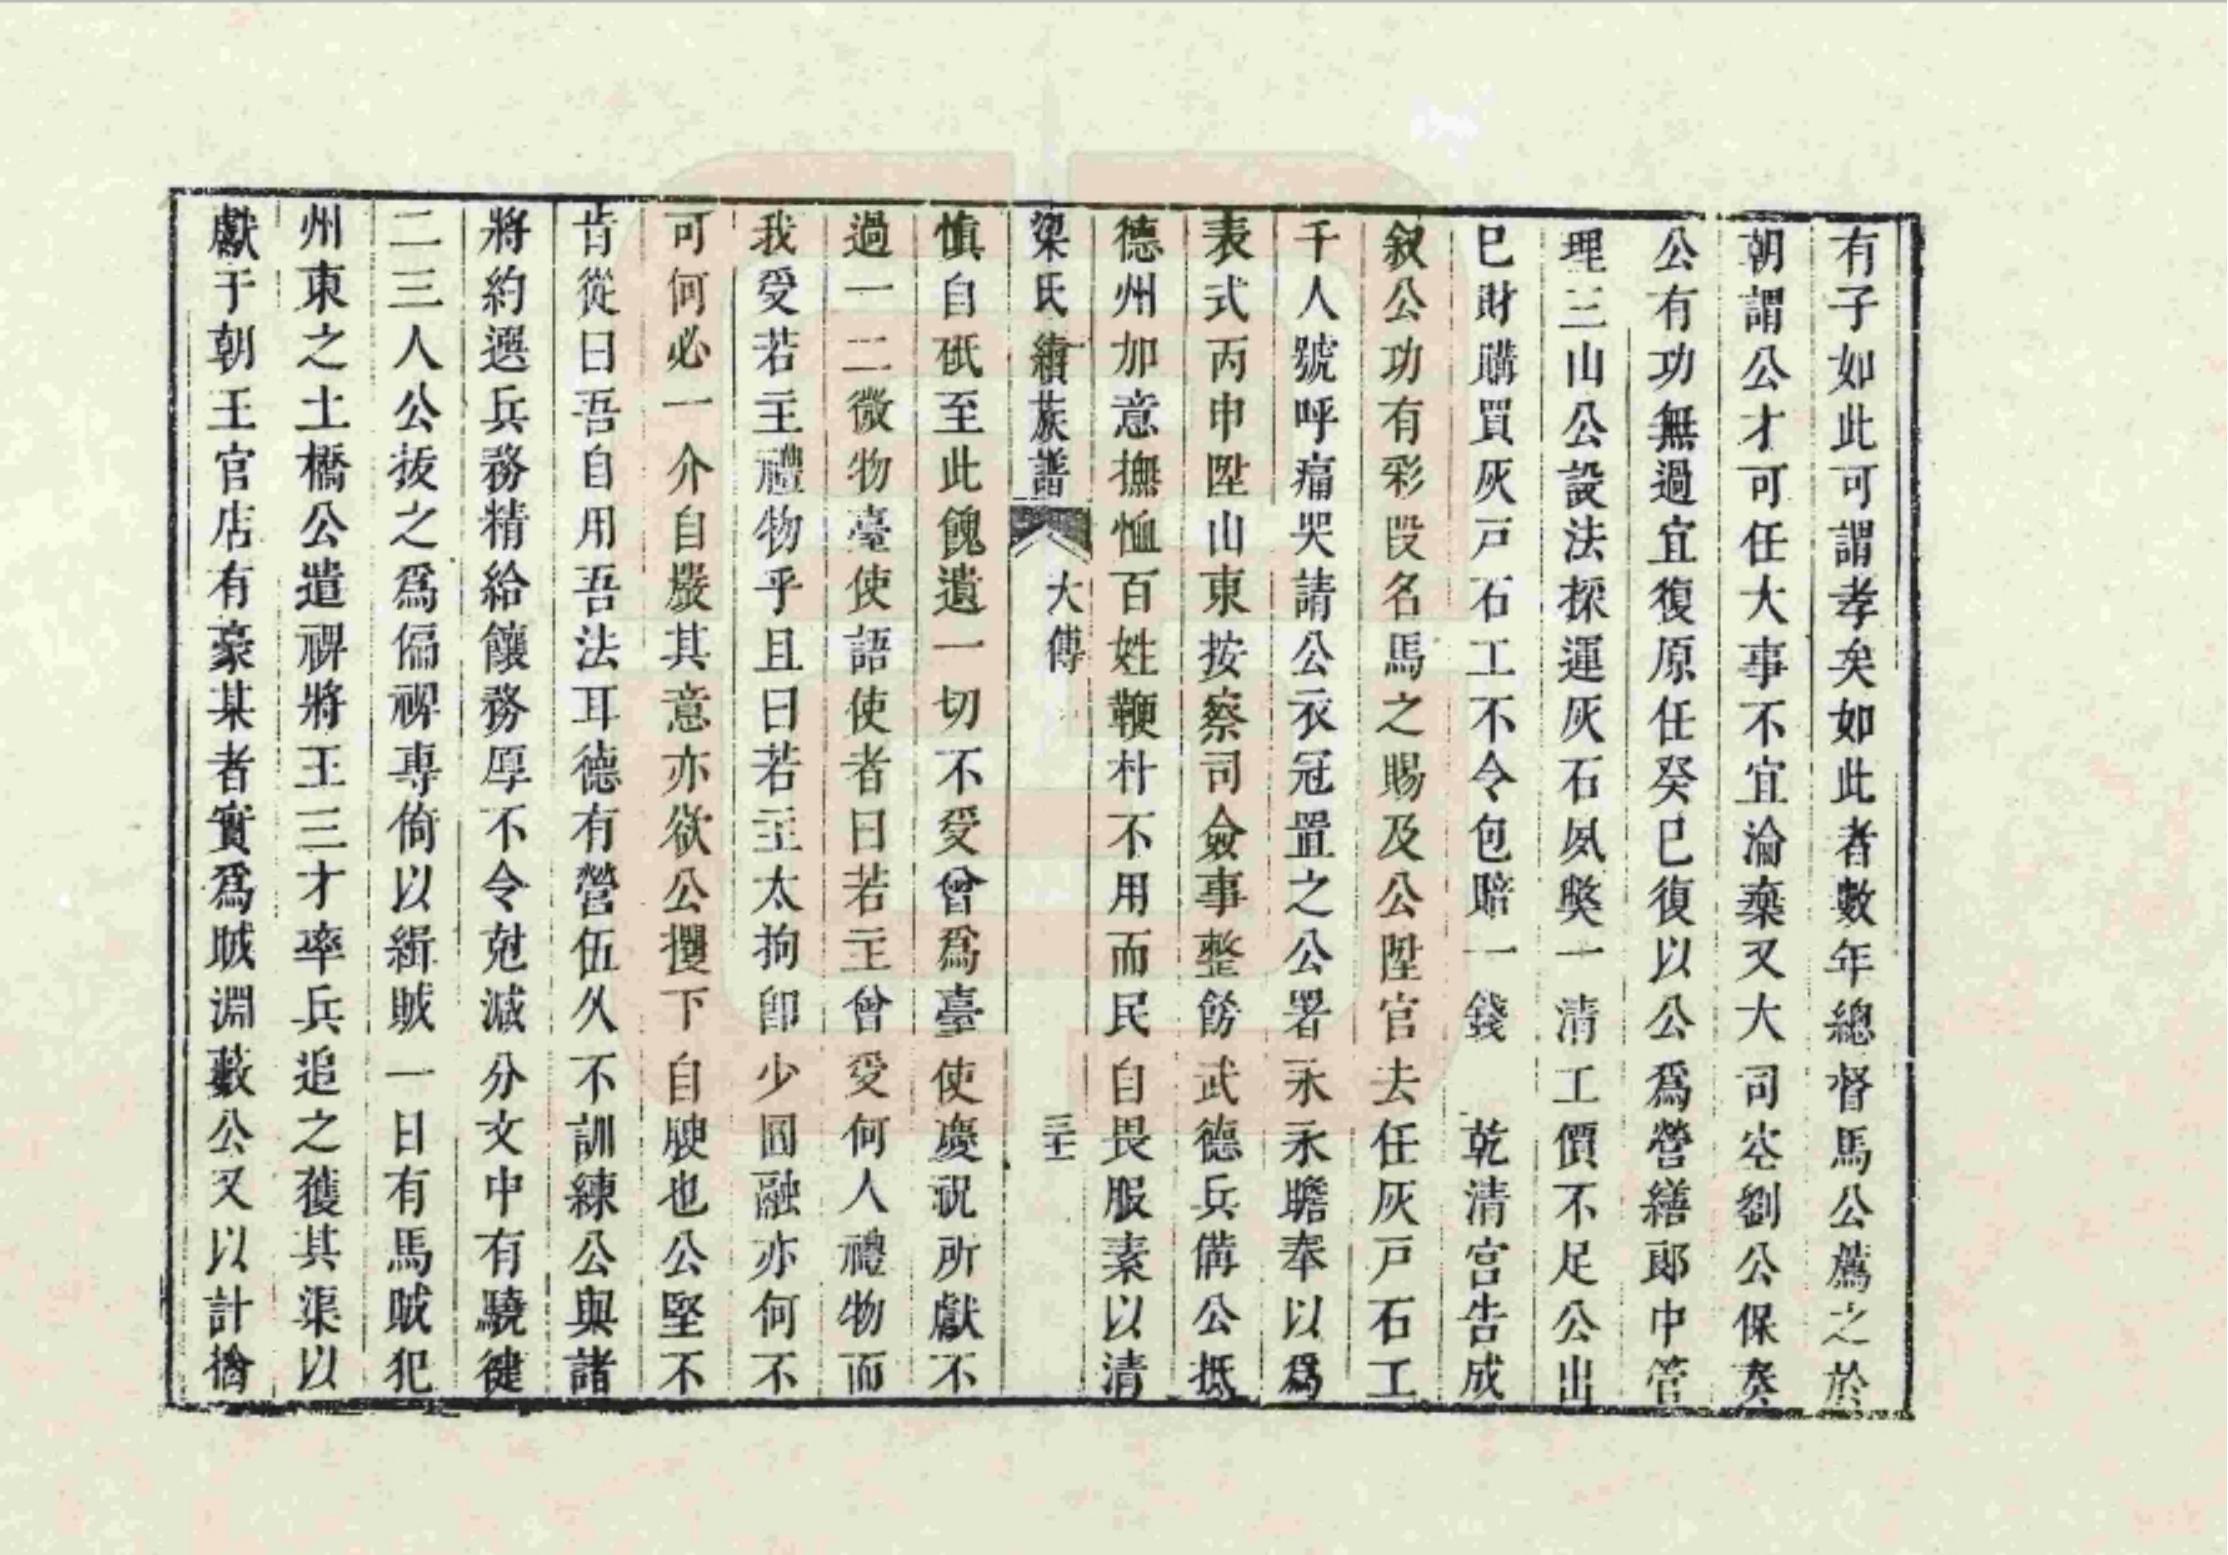 有子如此可謂孝矣如此者數年總督馬公薦之於
朝謂公才可任大事不宜淪棄又大司空劉公保奏
公有功無過宜復原任癸巳復以公爲營繕郎中管
理三山公設法採運灰石夙獘一清工價不足公出
己財購買灰戸石工不令包賠一錢 乾清宮告成
叙公功有彩段名馬之賜及公陞官去任灰戸石工
千人號呼痛哭請公衣冠置之公署永永瞻奉以爲
表式丙申陞山東按察司僉事整飭武德兵備公抵
德州加意撫恤百姓鞭朴不用而民自畏服素以清
梁氏續族譜 大傳 三十
慎自砥至此餽遺一切不受曾爲臺使慶祝所獻不
過一二微物臺使語使者曰若主曾受何人禮物而
我受若主禮物乎且曰若主太拘卽少圓融亦何不
可何必一介自嚴其意亦欲公攫下自腴也公堅不
肯從曰吾自用吾法耳德有營伍久不訓練公與諸
將約選兵務精給饟務厚不令尅減分文中有驍健
二三人公拔之爲偏禆專倚以緝賊一日有馬賊犯
州東之土橋公遣禆將王三才率兵追之獲其渠以
獻于朝王官店有豪某者實爲賊淵藪公又以計擒